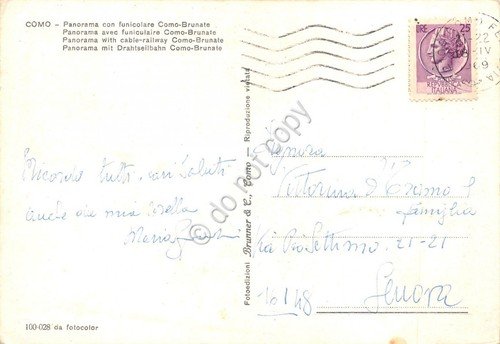 COMO - Panorama con funicolare Como-Brunate
Panorama avec funiculaire Como-Brunate
Panorama with cable-railway Como-Brunate
Panorama mit Drahtseilbahn Como-Brunate
Ricordo tutti, cari saluti
anche da mia sorella
Maria
100-028 da fotocolor
Fotoedizioni Brunner & C., Como - Riproduzione vietata
LIRE 25
REPUBBLICA
ITALIANA
22
IV
69
Signora
Vittorina
famiglia
Via Pio Settimo. 21-21
Genova
do not copy